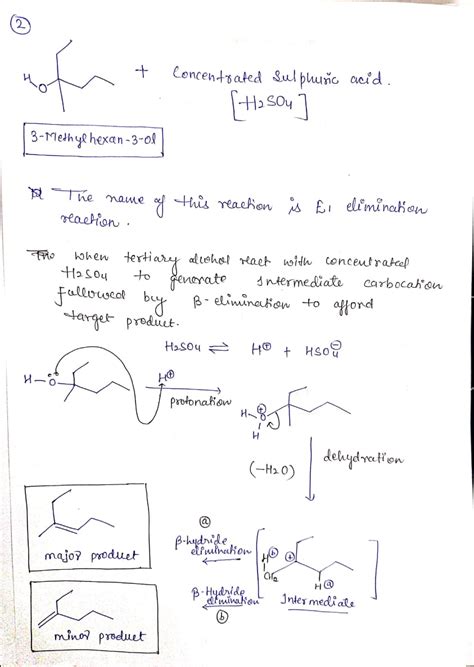 ②
H
O
+ Concentrated Sulphuric acid.
[H2SO4]
3-Methylhexan-3-ol
The name of this reaction is E1 elimination
reaction.
when tertiary alcohol react with concentrated
H2SO4 to generate intermediate carbocation
followed by β-elimination to afford
target product.
H2SO4 ⇌ H⊕ + HSO4⊖
H-O
H⊕
protonation
H-O⊕
H
(-H2O)
dehydration
major product
ⓐ
β-hydride
elimination
H ⓑ
⊕
CH2
H ⓐ
Intermediate
β-Hydride
elimination
ⓑ
minor product